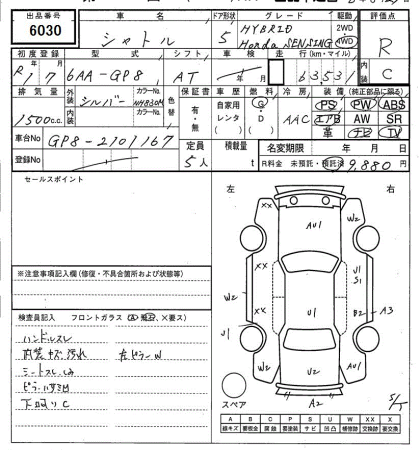 出品番号 車名 ドア形状 グレード 駆動 評価点
6030 シャトル 5 HYBRID Honda SENSING 2WD 4WD R
初度登録 型式 シフト 車検 走行(km・マイル) C
R1/7 6AA-GP8 AT 6353
排気量 外装 シルバー カラーNo. NH830M 色替 保証書 車歴 燃料 冷房 装備(純正部品に限る)
1500c.c. 内装 カラーNo. 有・無 自家用 レンタ G AAC PS PW ABS
エアB AW SR
革 ナビ TV
車台No GP8-2101167 定員 積載量 名変期限 年 月 日
登録No 5人 t R料金 未預託・預託済 9,880円
セールスポイント
左 右
XX W2 AU1 W2
XX U1 S1
W2 XX U1 B2 A3
U1 U2
スペア A2 S/T
※注意事項記入欄(修復・不具合箇所および状態等)
検査員記入 フロントガラス(A、飛石、×要ス)
ハンドルスレ
内装キズ汚れ 左ピラーW
シートスレ・しみ
下廻りC
A B C P S U W XX X
線キズ 腐蝕 要塗装 サビ 凹凸 補修跡 交換跡 要交換